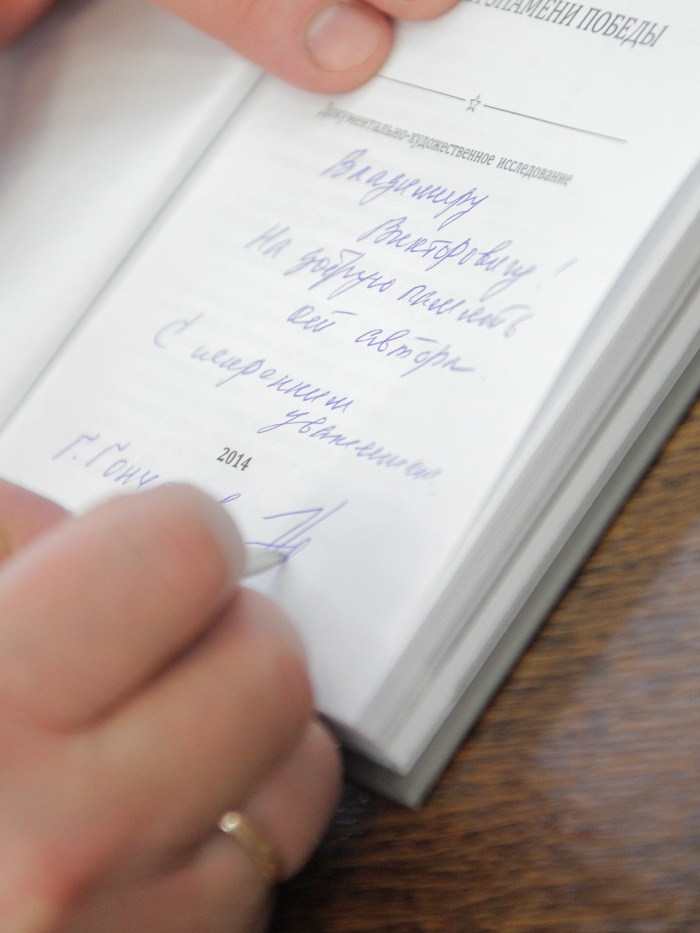 ЗНАМЕНИ ПОБЕДЫ
Документально-художественное исследование
Владимиру
Викторовичу!
На добрую память
от автора.
С искренним
уважением.
2014
Г. Гонч